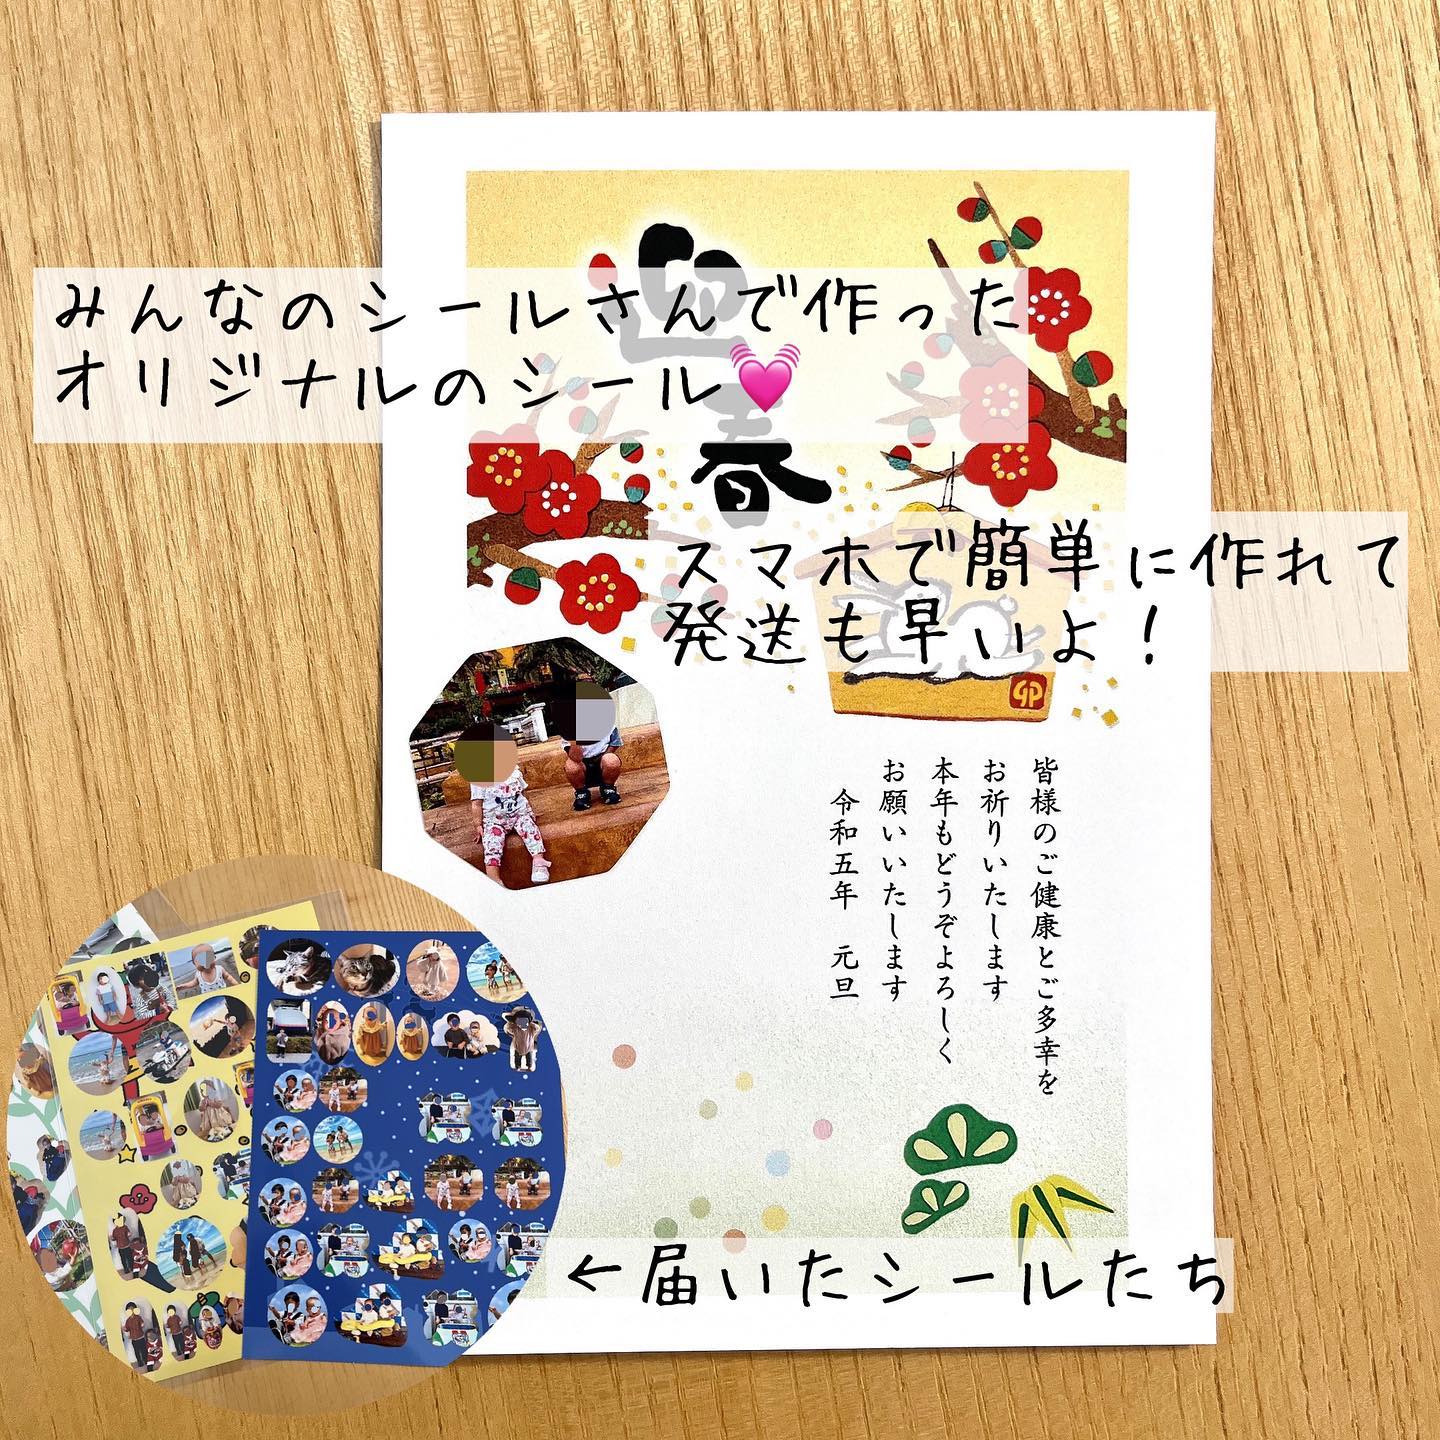 みんなのシールさんで作った
オリジナルのシール💓
迎春
スマホで簡単に作れて
発送も早いよ！
皆様のご健康とご多幸を
お祈りいたします
本年もどうぞよろしく
お願いいたします
令和五年　元旦
←届いたシールたち